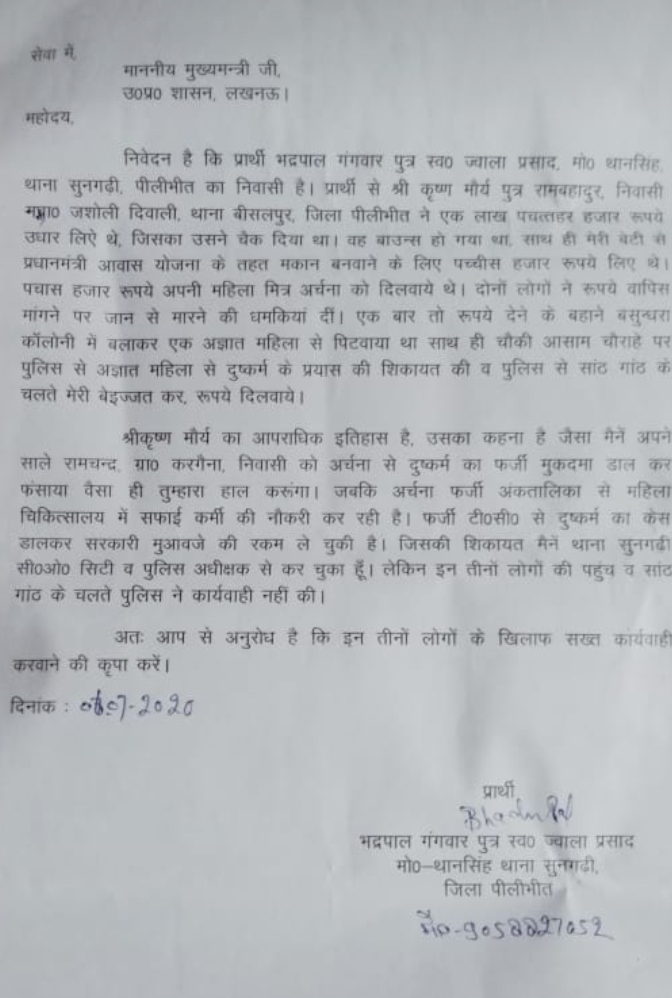 सेवा में,
माननीय मुख्यमन्त्री जी,
उ0प्र0 शासन, लखनऊ।
महोदय,
निवेदन है कि प्रार्थी भद्रपाल गंगवार पुत्र स्व0 ज्वाला प्रसाद, मो0 थानसिंह,
थाना सुनगढ़ी, पीलीभीत का निवासी है। प्रार्थी से श्री कृष्ण मौर्य पुत्र रामबहादुर, निवासी
ग्रा0 जशोली दिवाली, थाना बीसलपुर, जिला पीलीभीत ने एक लाख पचत्तहर हजार रूपये
उधार लिऐ थे, जिसका उसने चैक दिया था। वह बाउन्स हो गया था, साथ ही मेरी बेटी से
प्रधानमंत्री आवास योजना के तहत मकान बनवाने के लिए पच्चीस हजार रूपये लिए थे।
पचास हजार रूपये अपनी महिला मित्र अर्चना को दिलवाये थे। दोनों लोगों ने रूपये वापिस
मांगने पर जान से मारने की धमकियां दीं। एक बार तो रूपये देने के बहाने बसुन्धरा
कॉलोनी में बलाकर एक अज्ञात महिला से पिटवाया था साथ ही चौकी आसाम चौराहे पर
पुलिस से अज्ञात महिला से दुष्कर्म के प्रयास की शिकायत की व पुलिस से सांठ गांठ के
चलते मेरी बेइज्जत कर, रूपये दिलवाये।
श्रीकृष्ण मौर्य का आपराधिक इतिहास है, उसका कहना है जैसा मैनें अपने
साले रामचन्द, ग्रा0 करगैना, निवासी को अर्चना से दुष्कर्म का फर्जी मुकदमा डाल कर
फंसाया वैसा ही तुम्हारा हाल करूंगा। जबकि अर्चना फर्जी अंकतालिका से महिला
चिकित्सालय में सफाई कर्मी की नौकरी कर रही है। फर्जी टी0सी0 से दुष्कर्म का केस
डालकर सरकारी मुआवजे की रकम ले चुकी है। जिसकी शिकायत मैनें थाना सुनगढ़ी
सी0ओ0 सिटी व पुलिस अधीक्षक से कर चुका हूँ। लेकिन इन तीनों लोगों की पहुंच व सांठ
गांठ के चलते पुलिस ने कार्यवाही नहीं की।
अतः आप से अनुरोध है कि इन तीनों लोगों के खिलाफ सख्त कार्यवाही
करवाने की कृपा करें।
दिनांक : 07-2020
प्रार्थी
भद्रपाल गंगवार पुत्र स्व0 ज्वाला प्रसाद
मो0-थानसिंह थाना सुनगढी,
जिला पीलीभीत
मो0-9058827052